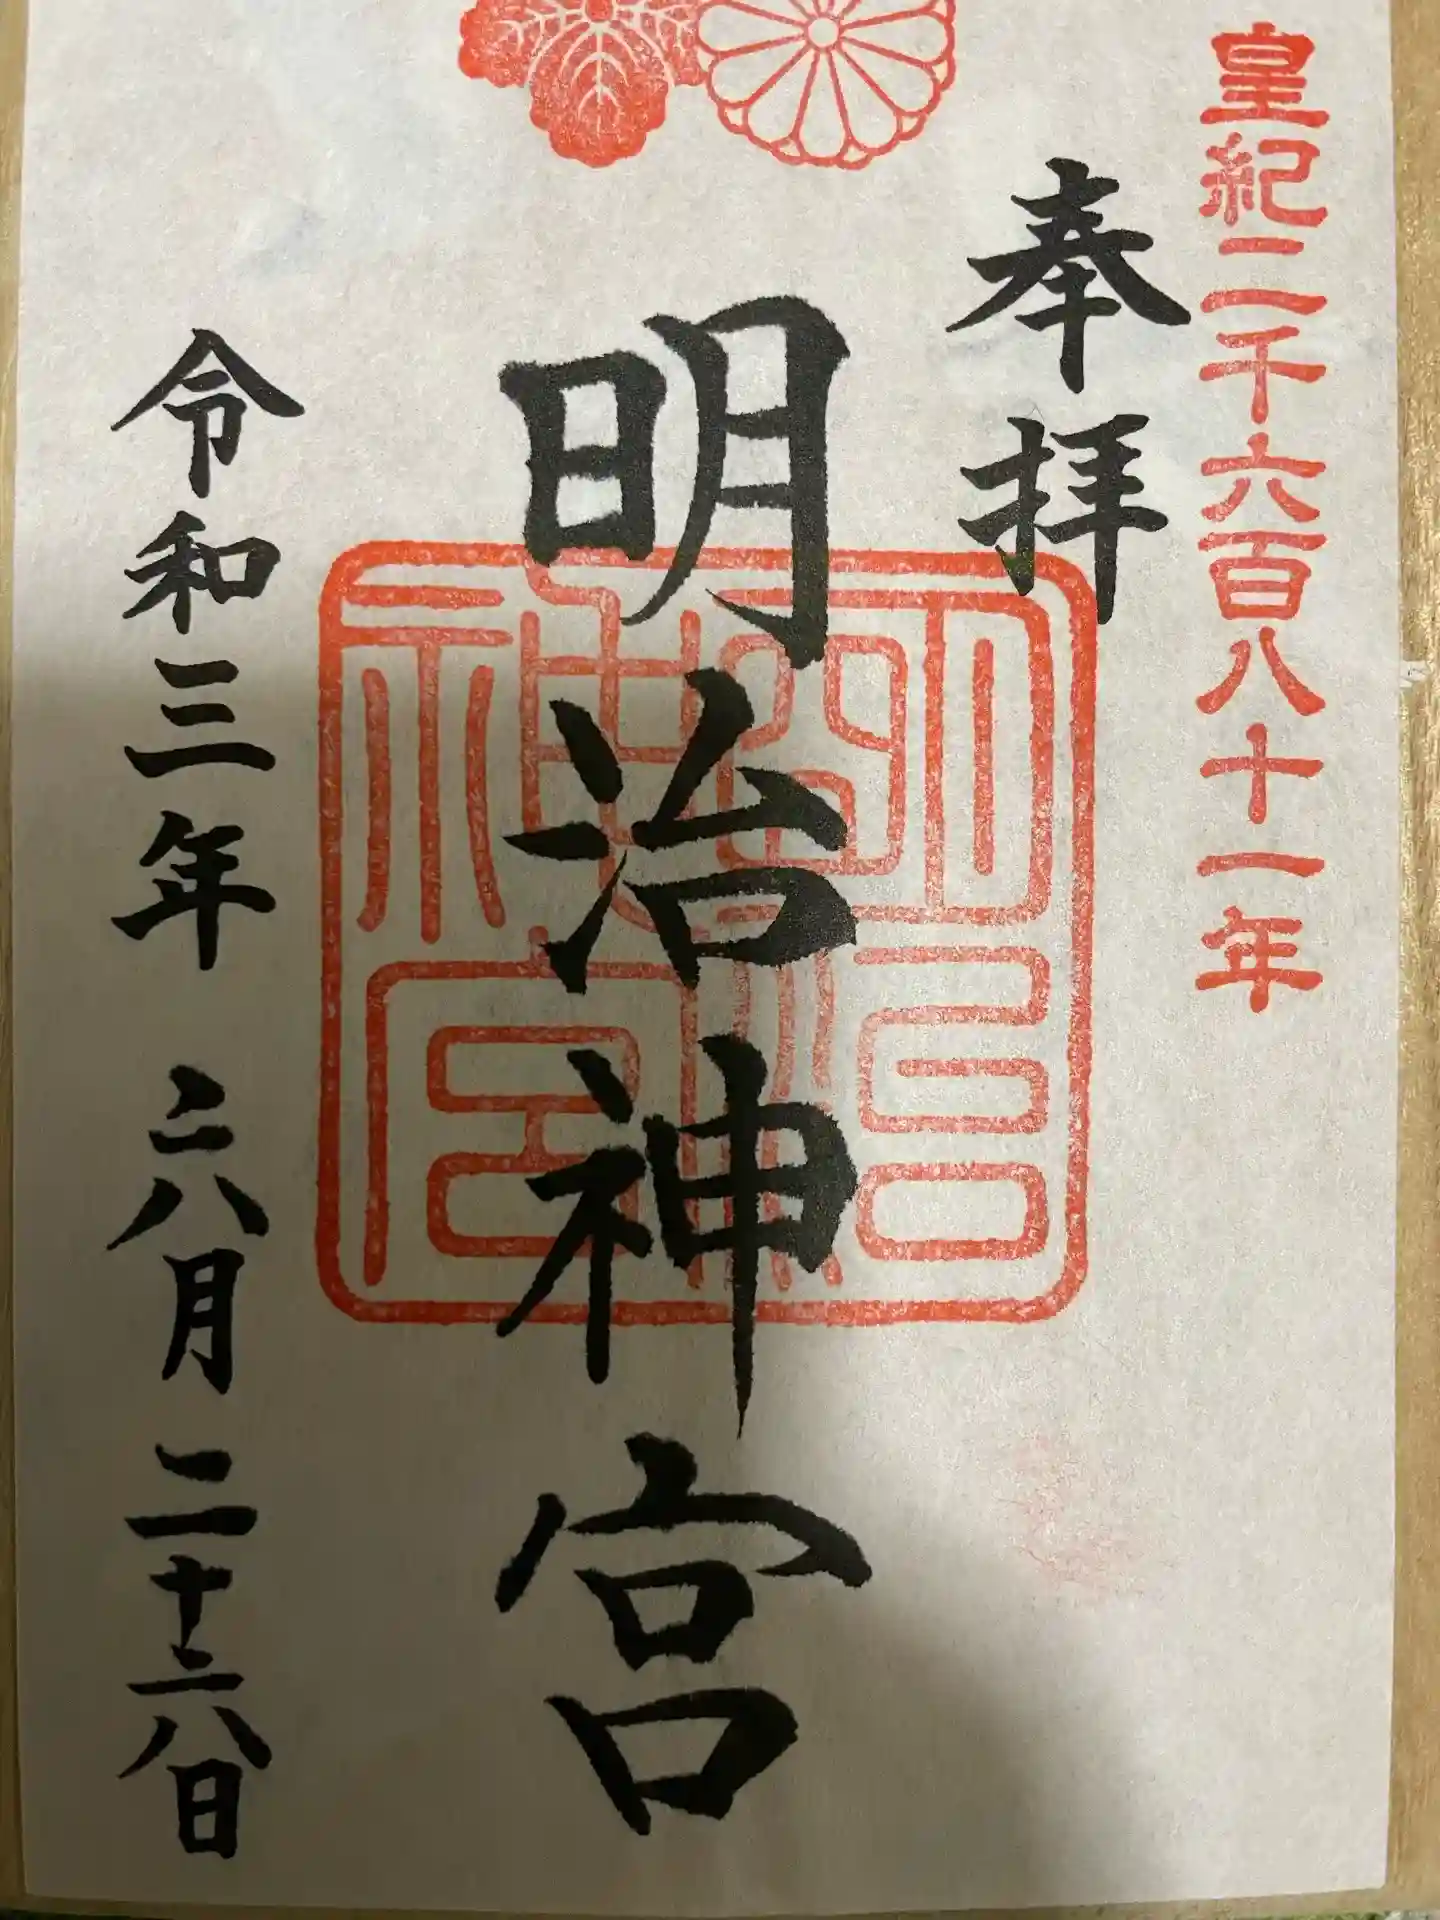 皇紀二千六百八十一年
奉拝
明治神宮
明治神宮
令和三年 六月 二十六日